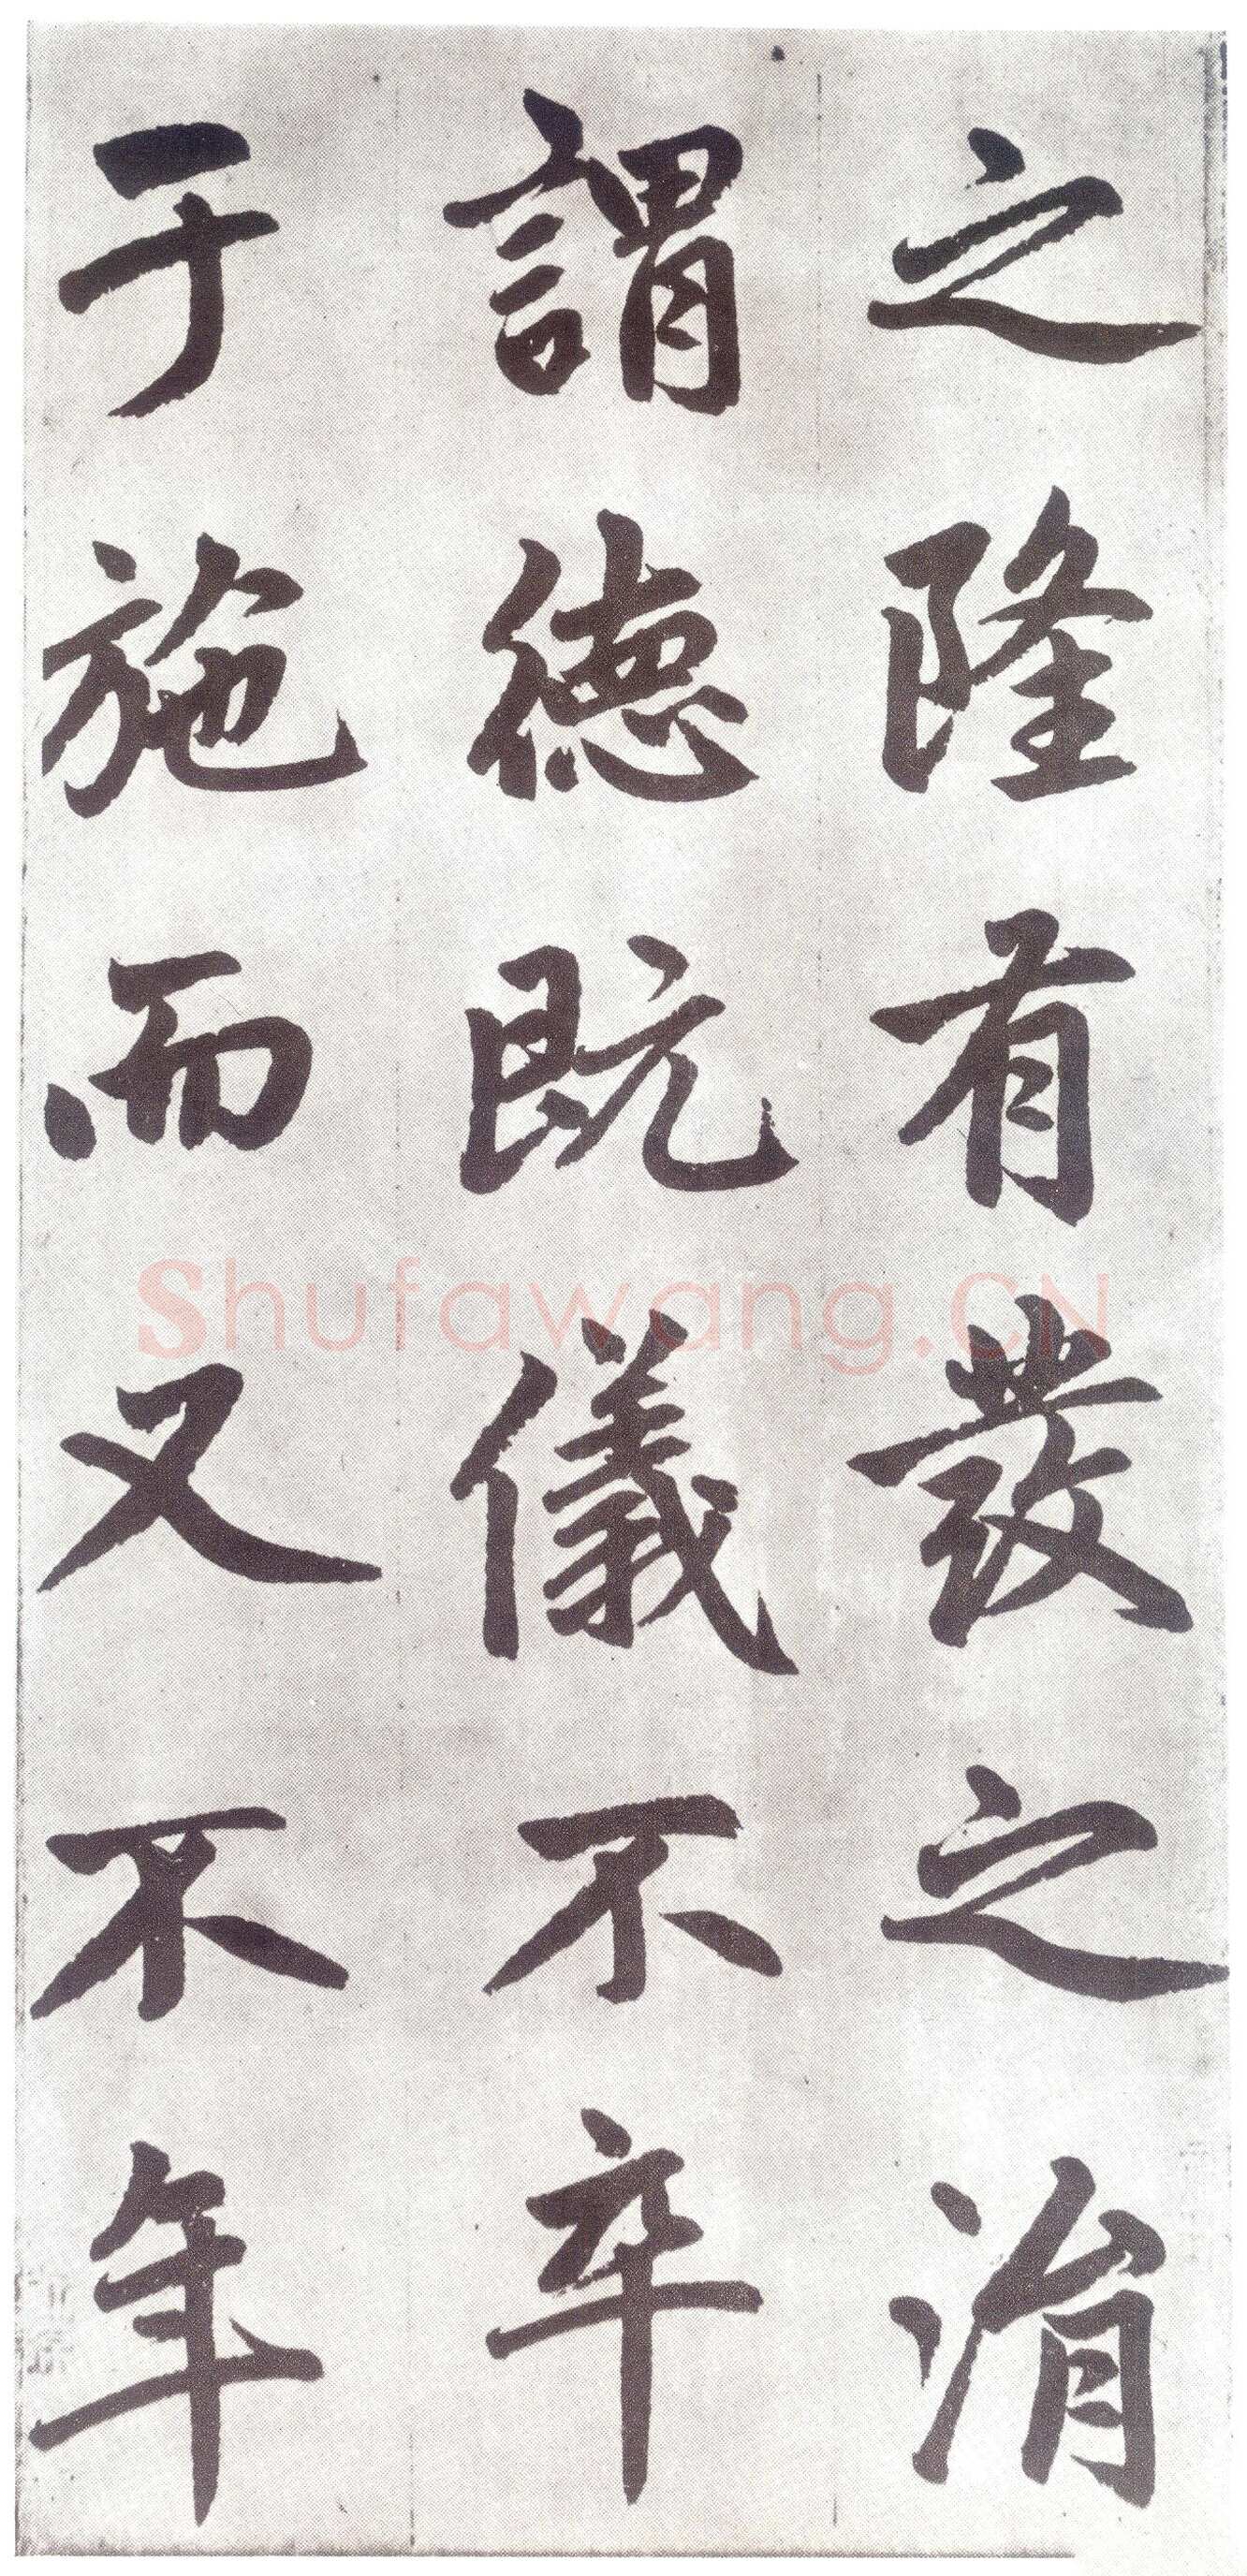 之隆有發之
謂德既儀不卒
于施而又不年
Shufawang.CN